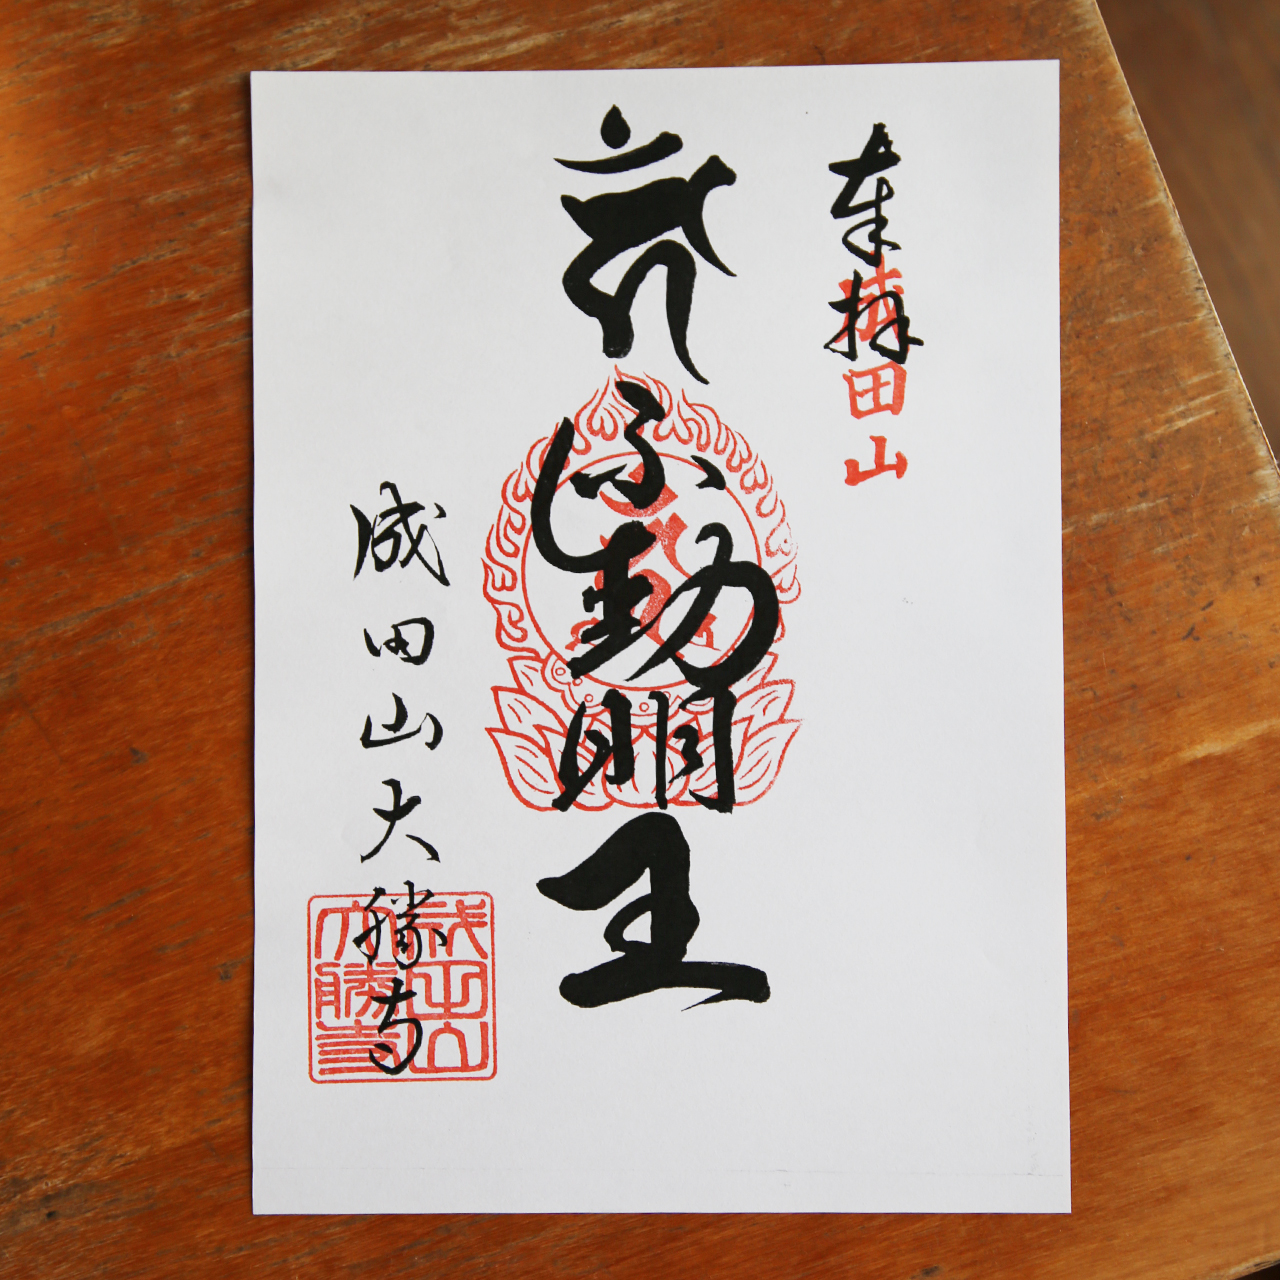 奉拝
成田山
不動明王
成田山大勝寺
成田山
大勝寺